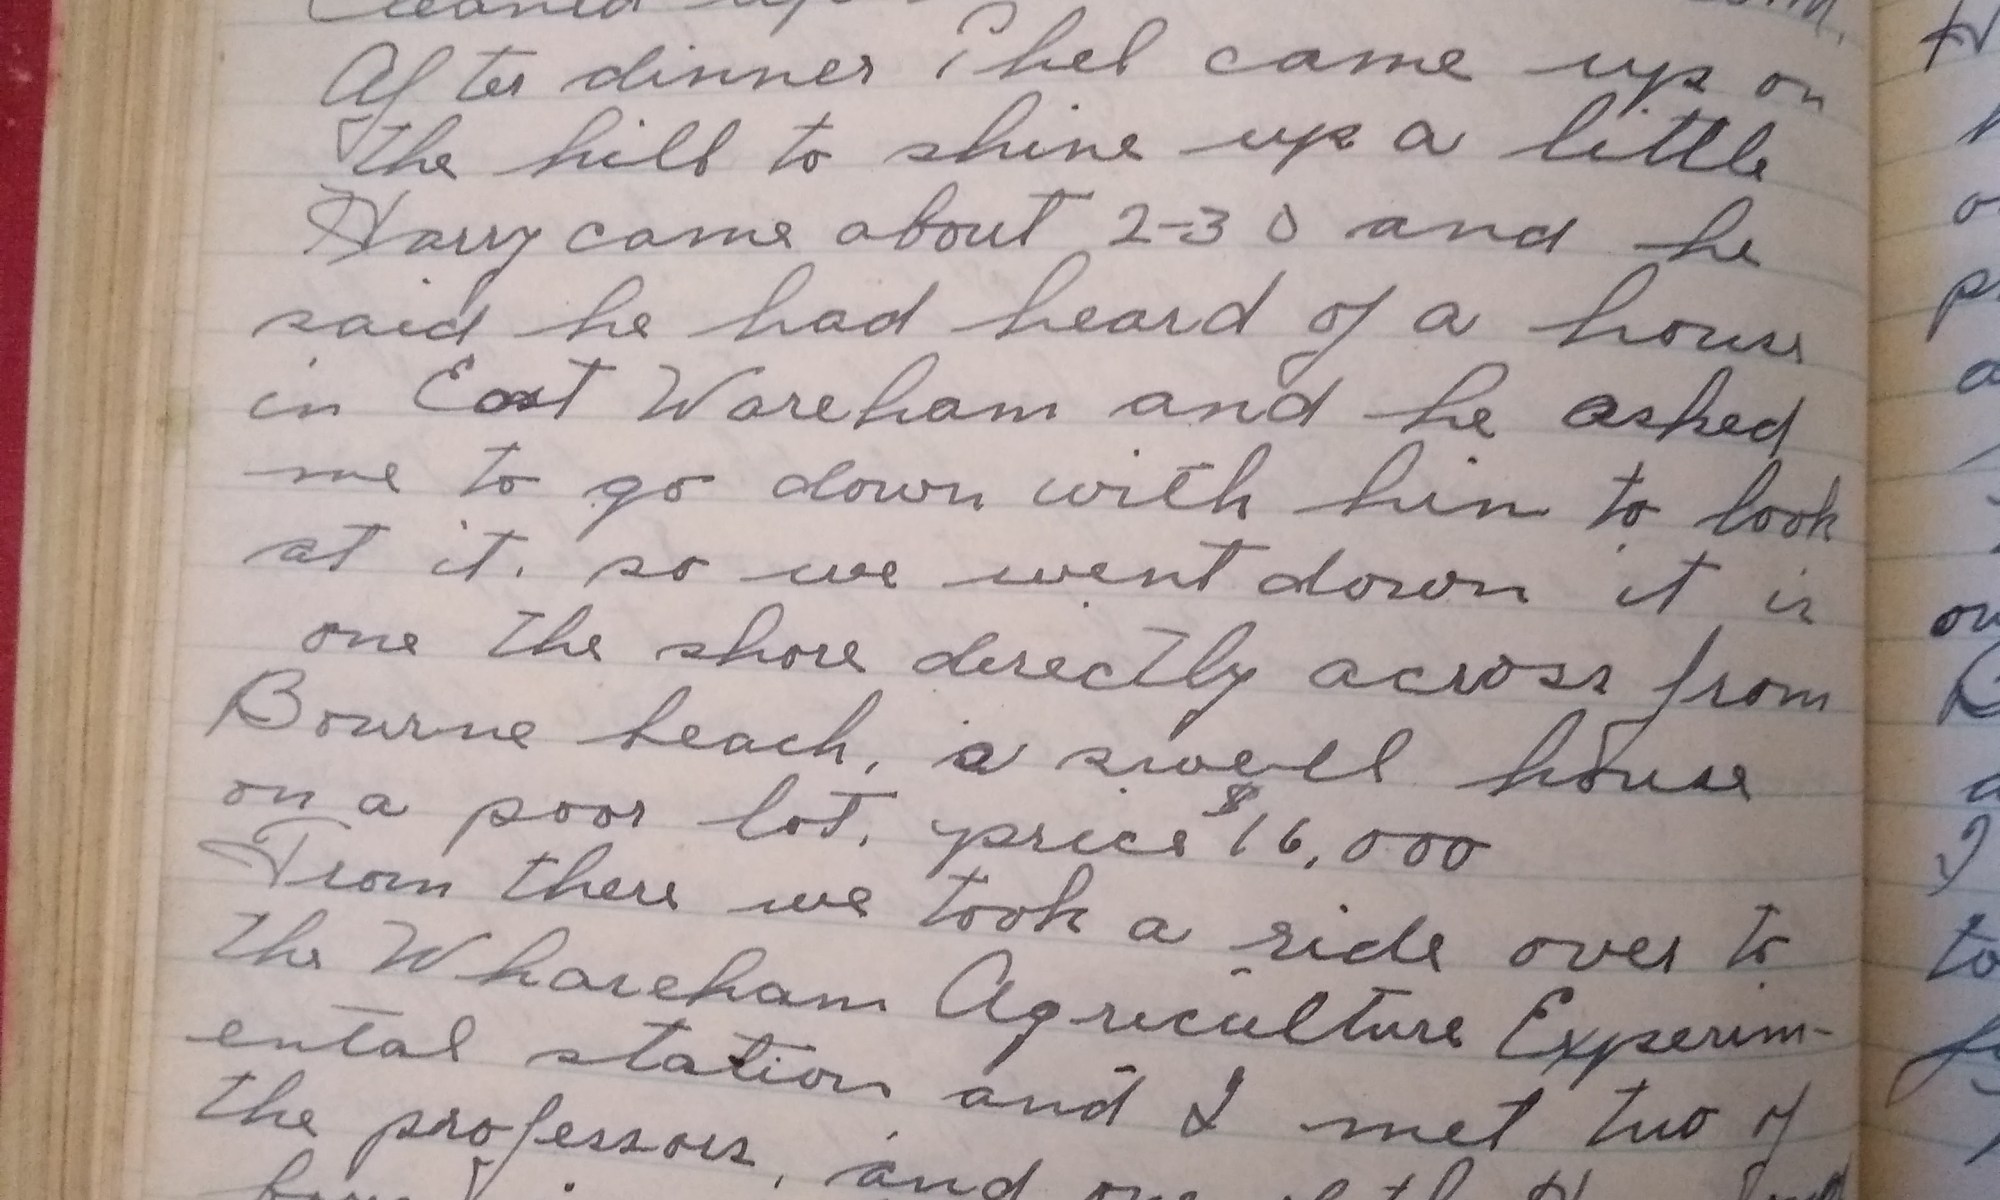 Cleaned up
After dinner Phel came up on
the hill to shine up a little
Harry came about 2-30 and he
said he had heard of a house
in East Wareham and he asked
me to go down with him to look
at it. so we went down it is
one the shore directly across from
Bourne beach, a swell house
on a poor lot, price $16,000
From there we took a ride over to
the Whareham Agriculture Experim-
ental station and I met two of
the professors, and one of the